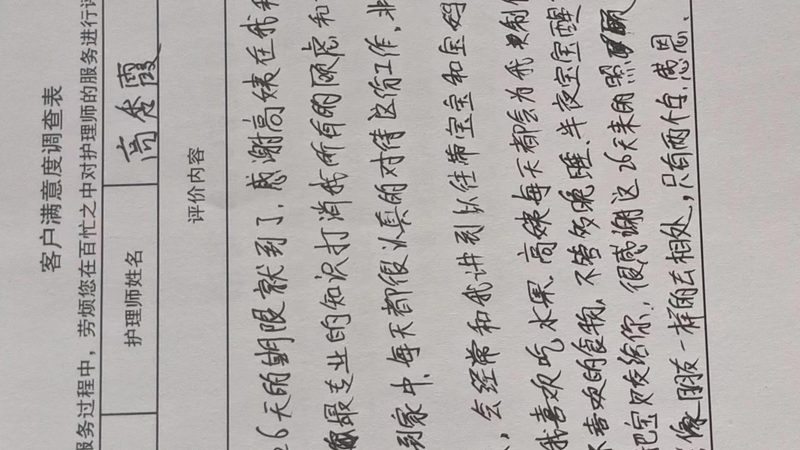 客户满意度调查表
服务过程中，劳烦您在百忙之中对护理师的服务进行评
护理师姓名 高秀霞
评价内容
26天的期限就到了，感谢高姨在我和
最专业的知识打消我所有的顾虑和
到家中，每天都很认真的对待这份工作，非
会经常和我讲到以往带宝宝和宝妈
我喜欢吃水果，高姨每天都会为我制作
不喜欢的食物，不管多晚睡、半夜宝宝醒
把宝贝交给你，很感谢这26天来的照顾
像朋友一样的去相处，只有两个字，感恩。